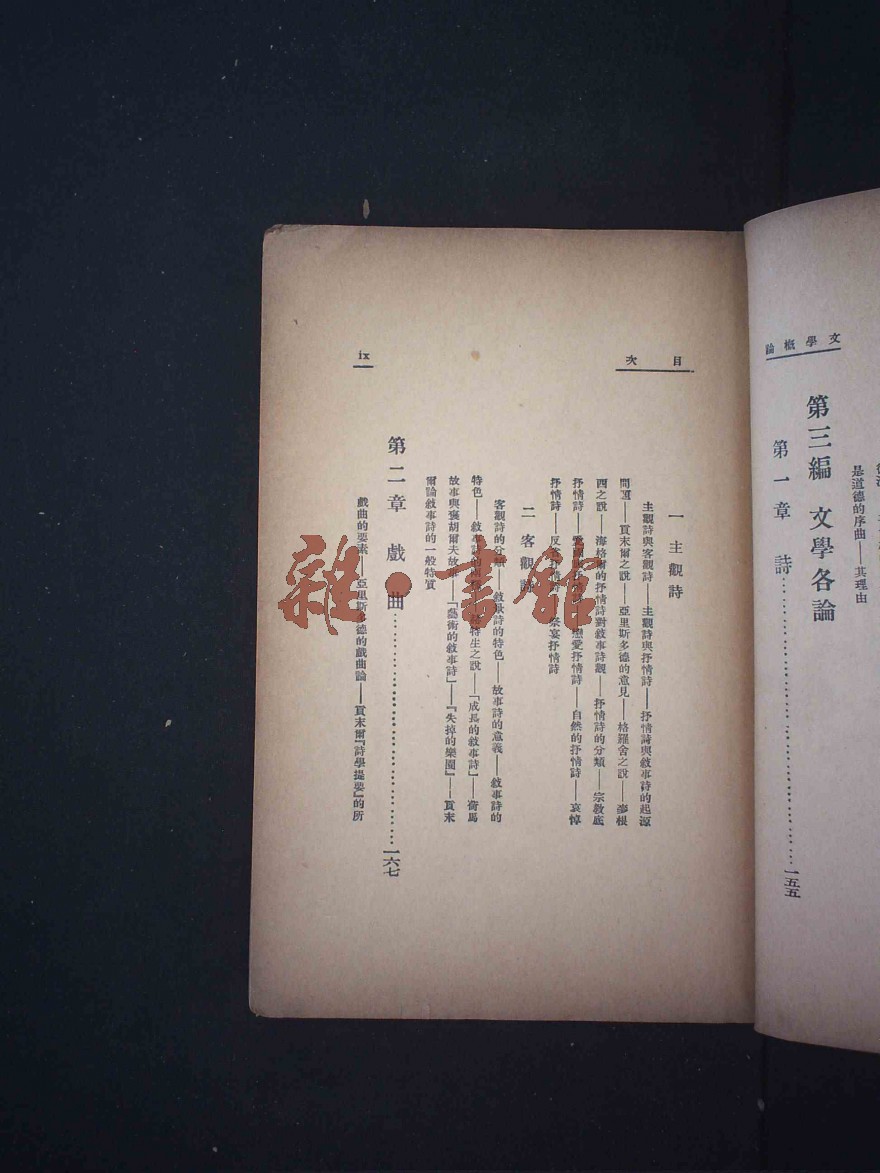 文學概論
是道德的序曲——其理由
第三編 文學各論
第一章 詩……一五五
目次
一 主觀詩
主觀詩與客觀詩——主觀詩與抒情詩——抒情詩與敘事詩的起源
問題——貢末爾之說——亞里斯多德的意見——格羅舍之說——麥根
西之說——海格爾的抒情詩對敘事詩觀——抒情詩的分類——宗教底
抒情詩——愛國抒情詩——戀愛抒情詩——自然的抒情詩——哀悼
抒情詩——反省抒情詩——祭宴抒情詩
二 客觀詩
客觀詩的分類——敘景詩的特色——故事詩的意義——敘事詩的
特色——敘事詩的 特生之說——「成長的敘事詩」——荷馬
故事與褒胡爾夫故事——「藝術的敘事詩」——『失掉的樂園』——貢末
爾論敘事詩的一般特質
第二章 戲曲……一六七
戲曲的要素——亞里斯多德的戲曲論——貢末爾『詩學提要』的所
ix
雜·書館